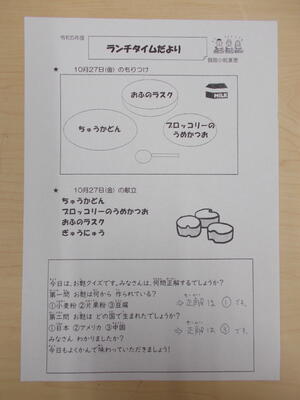 令和5年度
ランチタイムだより
★ 10月27日(金)のもりつけ
おふのラスク
MILK
ちゅうかどん
ブロッコリーの
うめかつお
★ 10月27日(金)の献立
ちゅうかどん
ブロッコリーのうめかつお
おふのラスク
ぎゅうにゅう
今日は、お麩クイズです。みなさんは、何問正解するでしょうか?
第一問 お麩は何から 作られている?
①小麦粉 ②片栗粉 ③豆腐 ⇒ 正解は ① です。
第二問 お麩は どの国で生まれたでしょうか?
①日本 ②アメリカ ③中国 ⇒ 正解は ③ です。
みなさん わかりましたか?
今日もよくかんで味わっていただきましょう!